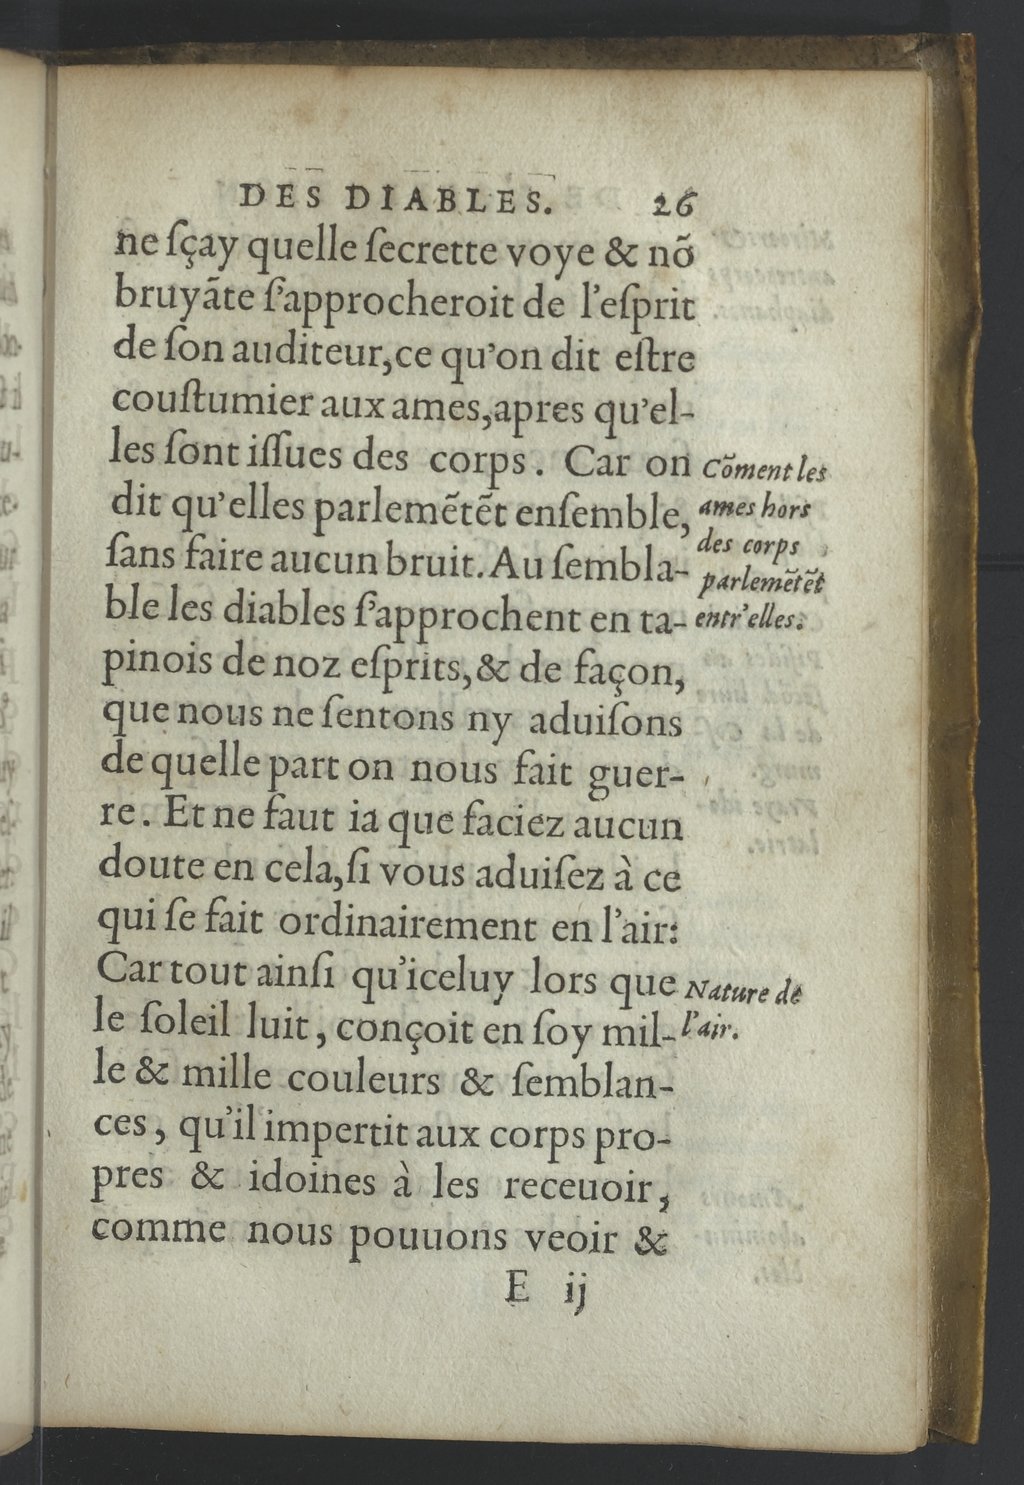 DES DIABLES. 26
ne ſçay quelle ſecrette voye & nõ
bruyãte ſ'approcheroit de l'eſprit
de ſon auditeur,ce qu'on dit eſtre
couſtumier aux ames,apres qu'el-
les ſont iſſues des corps. Car on
dit qu'elles parlemẽtẽt enſemble,
ſans faire aucun bruit. Au ſembla-
ble les diables ſ'approchent en ta-
pinois de noz eſprits,& de façon,
que nous ne ſentons ny aduiſons
de quelle part on nous fait guer-
re. Et ne faut ia que faciez aucun
doute en cela,ſi vous aduiſez à ce
qui ſe fait ordinairement en l'air:
Car tout ainſi qu'iceluy lors que
le ſoleil luit, conçoit en ſoy mil-
le & mille couleurs & ſemblan-
ces, qu'il impertit aux corps pro-
pres & idoines à les receuoir,
comme nous pouuons veoir &
E ij
Cõment les
ames hors
des corps
parlemẽtẽt
entr'elles.
Nature de
l'air.